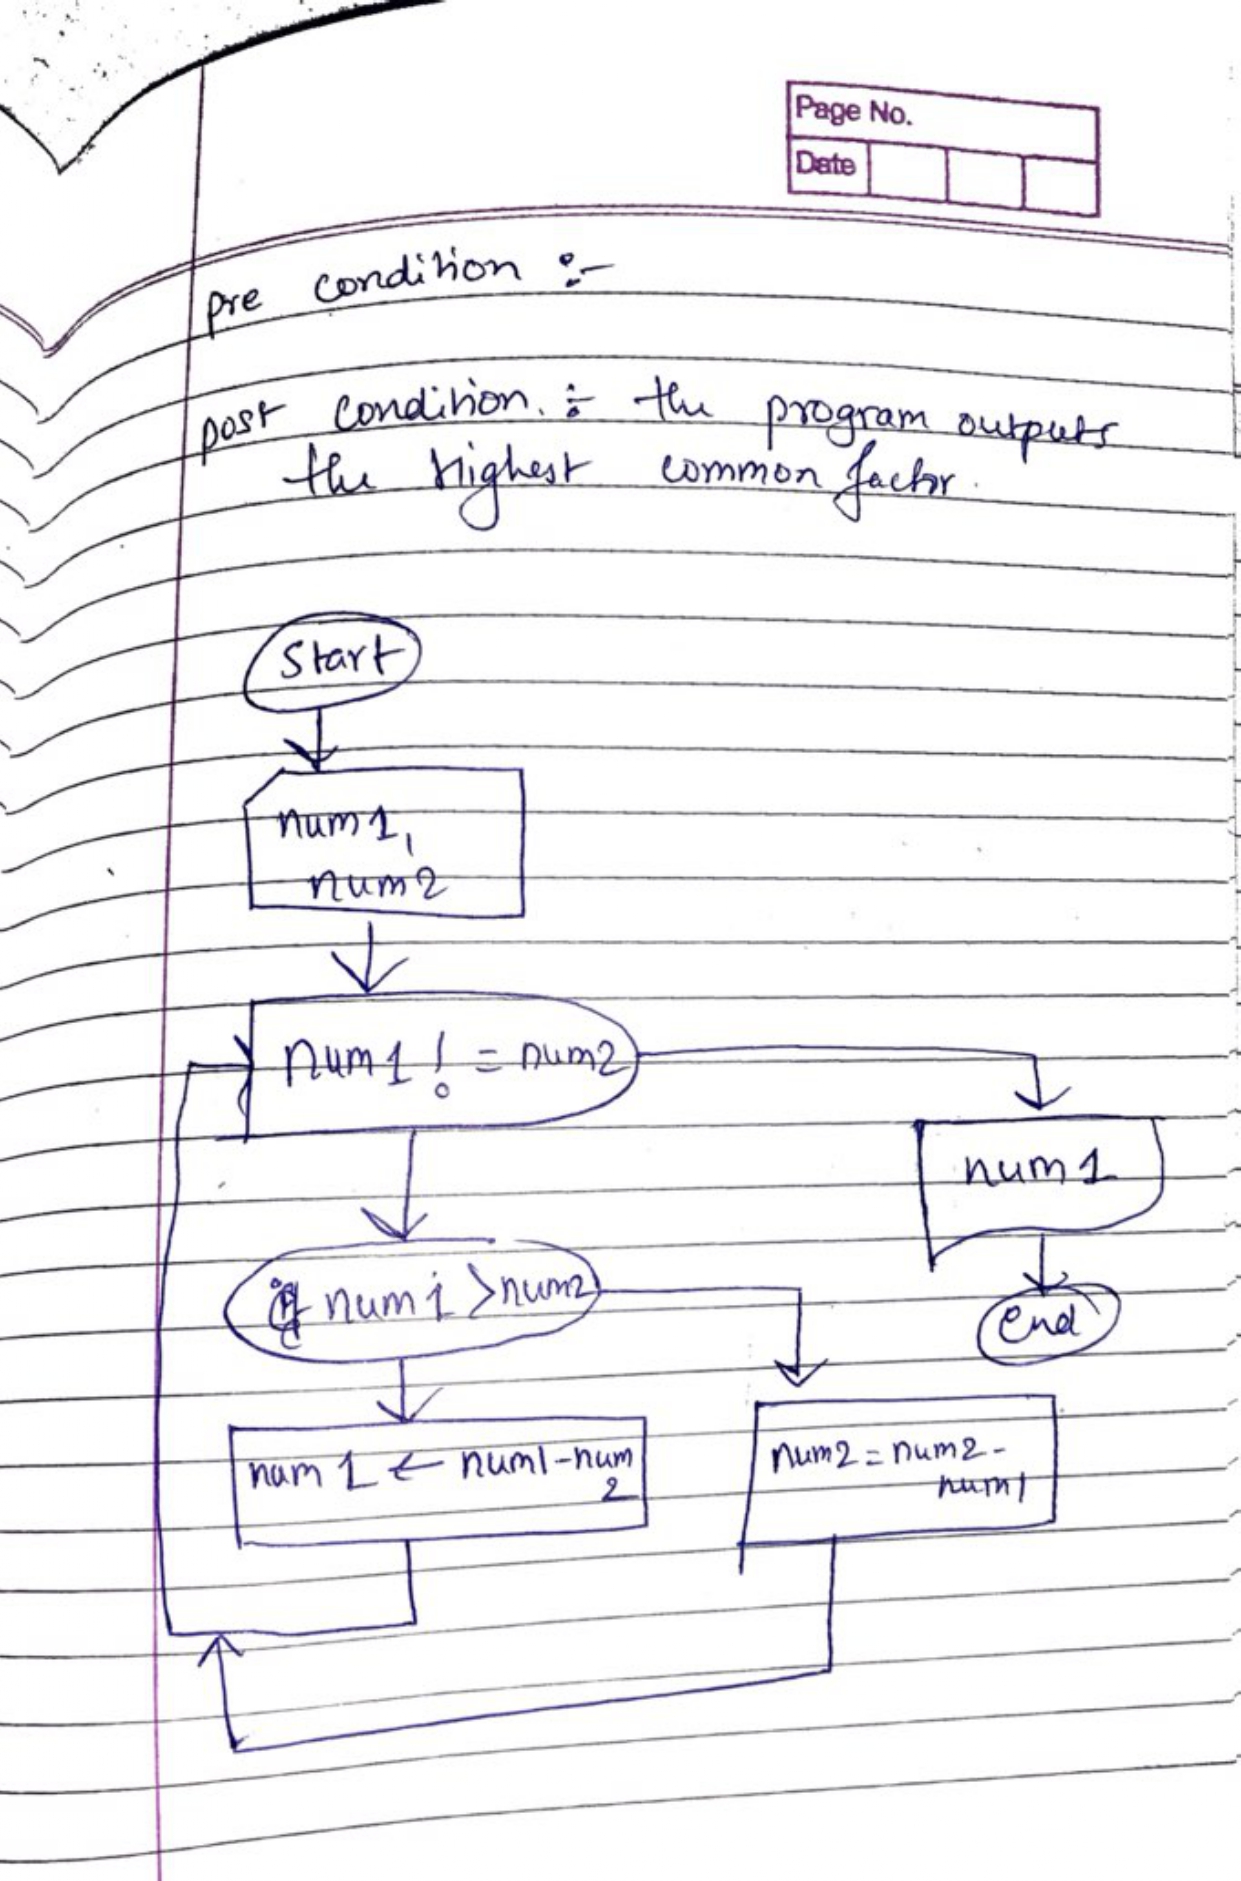 Page No.
Date
pre condition :-
post condition. :- the program outputs
the highest common factor.
Start
num1,
num2
num1 ! = num2
num1
if num1 >num2
end
num 1 ← num1-num
2
num2 = num2 -
num1